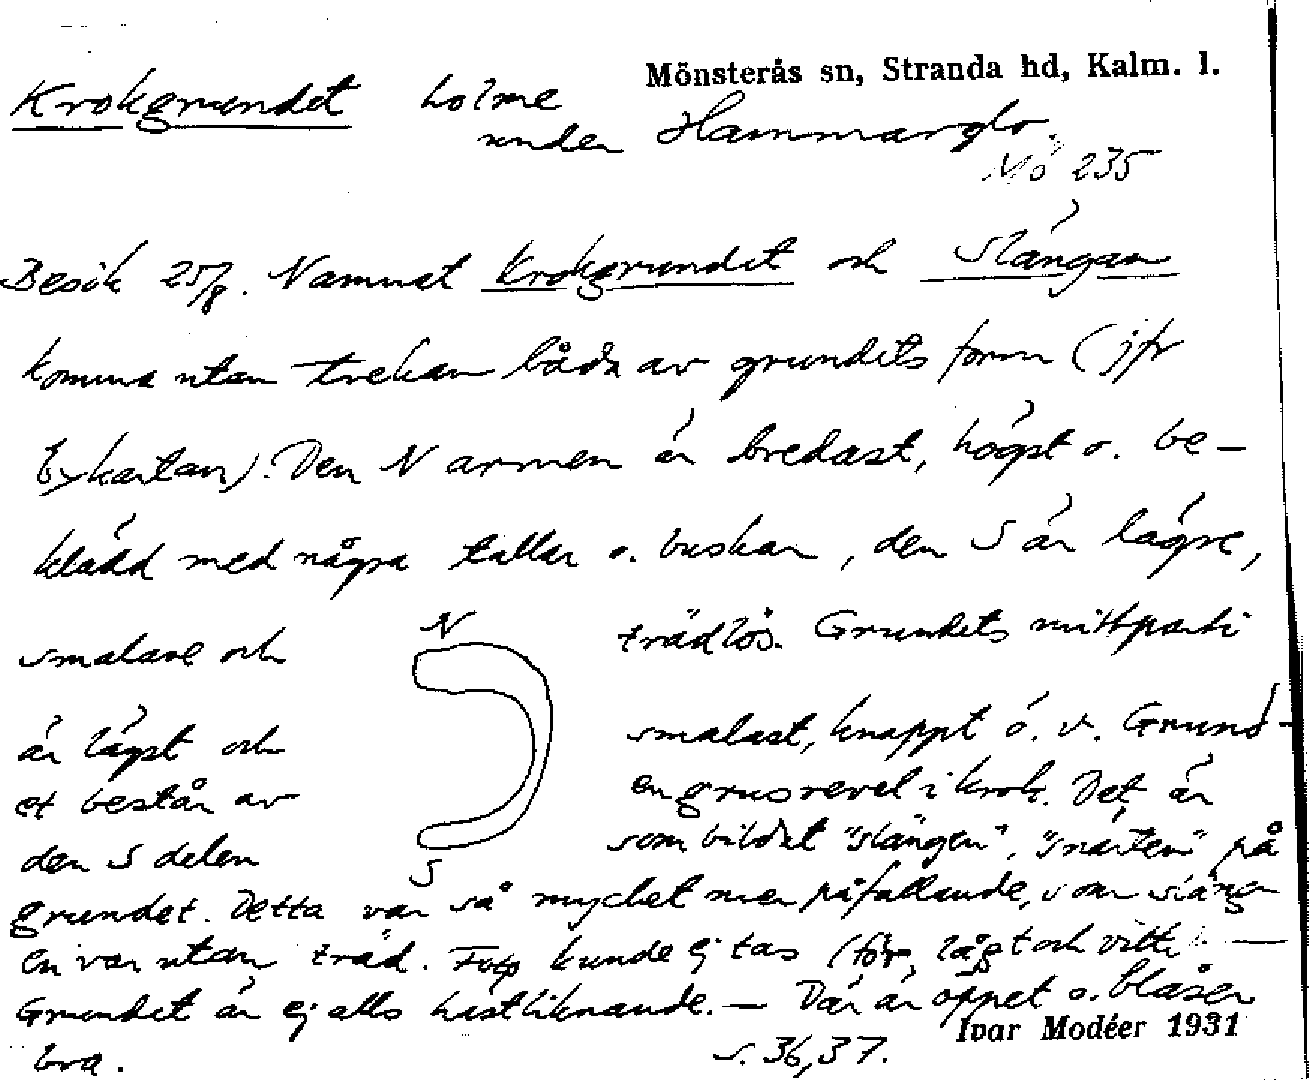 Mönsterås sn, Stranda hd, Kalm. l.
Krokgrundet holme
under Hammarglo.
Mö 235
Besök 25/8. Namnet Krokgrundet och Slängan
komma utan tvekan båda av grundets form (jfr
bykartan). Den N armen är bredast, högst o. be-
klädd med några tallar o. buskar, den S är lägre,
smalare och N trädlös. Grundets mittparti
är lägst och smalast, knappt ö. v. Grund-
et består av en grusrevel i krok. Det är
den S delen S som bildat "slängen", "snärten" på
grundet. Detta var så mycket mer påfallande, som släng-
en var utan träd. Foto kunde ej tas (för lågt och vitt). —
Grundet är ej alls hästliknande. — Där är öppet o. blåser
bra. s. 36, 37.
Ivar Modéer 1931